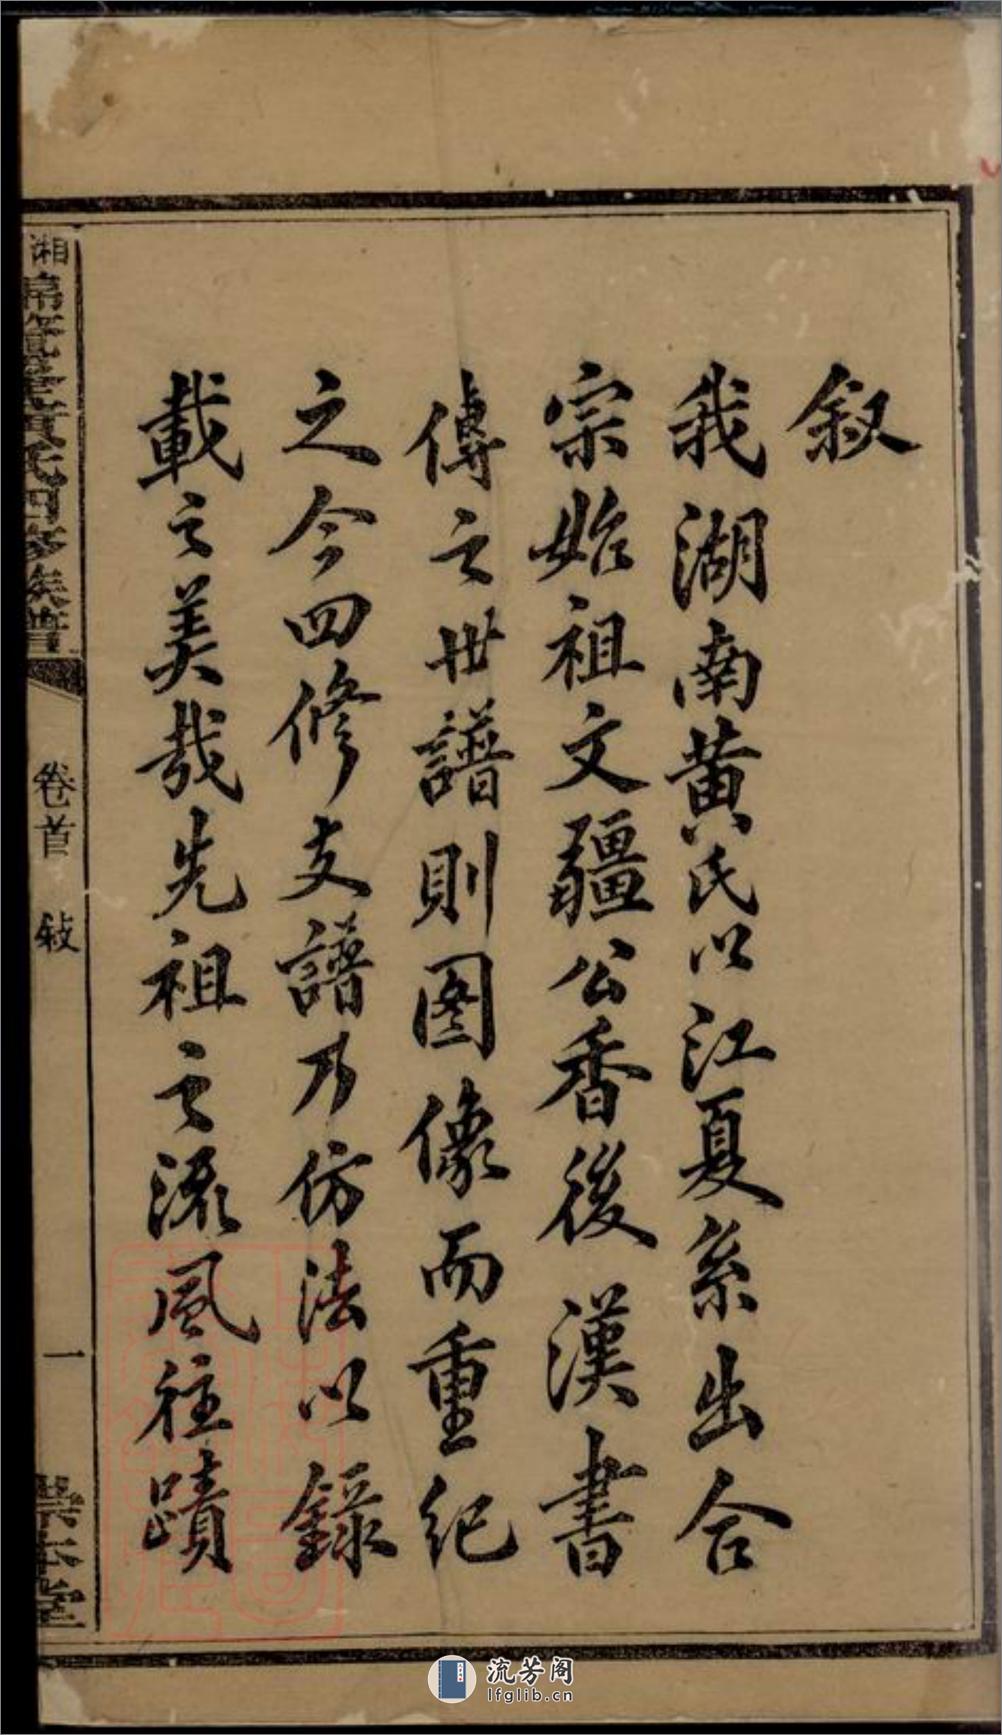 叙
我湖南黄氏以江夏系出合
宗始祖文疆公香後漢書
傳之世譜則图像而重纪
之今四修支譜乃仿法以錄
載之美哉先祖之流風往蹟
湘
黃氏四修族譜
卷首 敍
一
堂
流芳阁
lfglib.cn